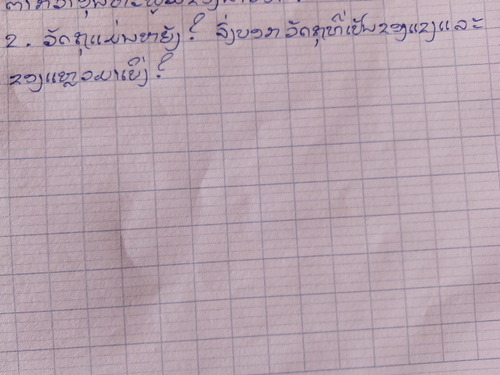 2. ວັດຖຸແມ່ນຫຍັງ? ຈົ່ງບອກວັດຖຸທີ່ເປັນຂອງແຂງແລະ
ຂອງແຫຼວມາເບິ່ງ?